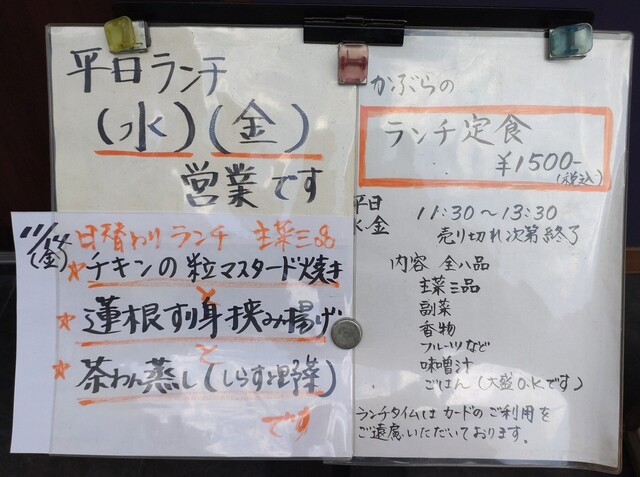 平日ランチ
(水)(金)
営業です
(金)
日替わりランチ 主菜三品
★チキンの粒マスタード焼き
と
★蓮根すり身挟み揚げ
と
★茶わん蒸し(しらすと野菜)
です
かぶらの
ランチ定食
¥1500-
(税込)
平日
水・金
11:30〜13:30
売り切れ次第終了
内容 全八品
主菜三品
副菜
香物
フルーツなど
味噌汁
ごはん(大盛O.Kです)
ランチタイムはカードのご利用を
ご遠慮いただいております。